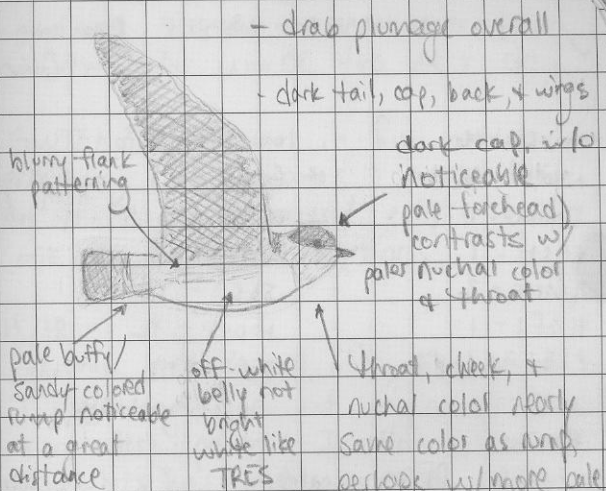 - drab plumage overall
- dark tail, cap, back, & wings
dark cap, w/o
noticeable
pale forehead)
contrasts w/
paler nuchal color
& throat
blurry flank
patterning
pale buffy/
sandy-colored
rump noticeable
at a great
distance
off-white
belly not
bright
white like
TRES
throat, cheek, &
nuchal color nearly
same color as rump,
w/ more pale